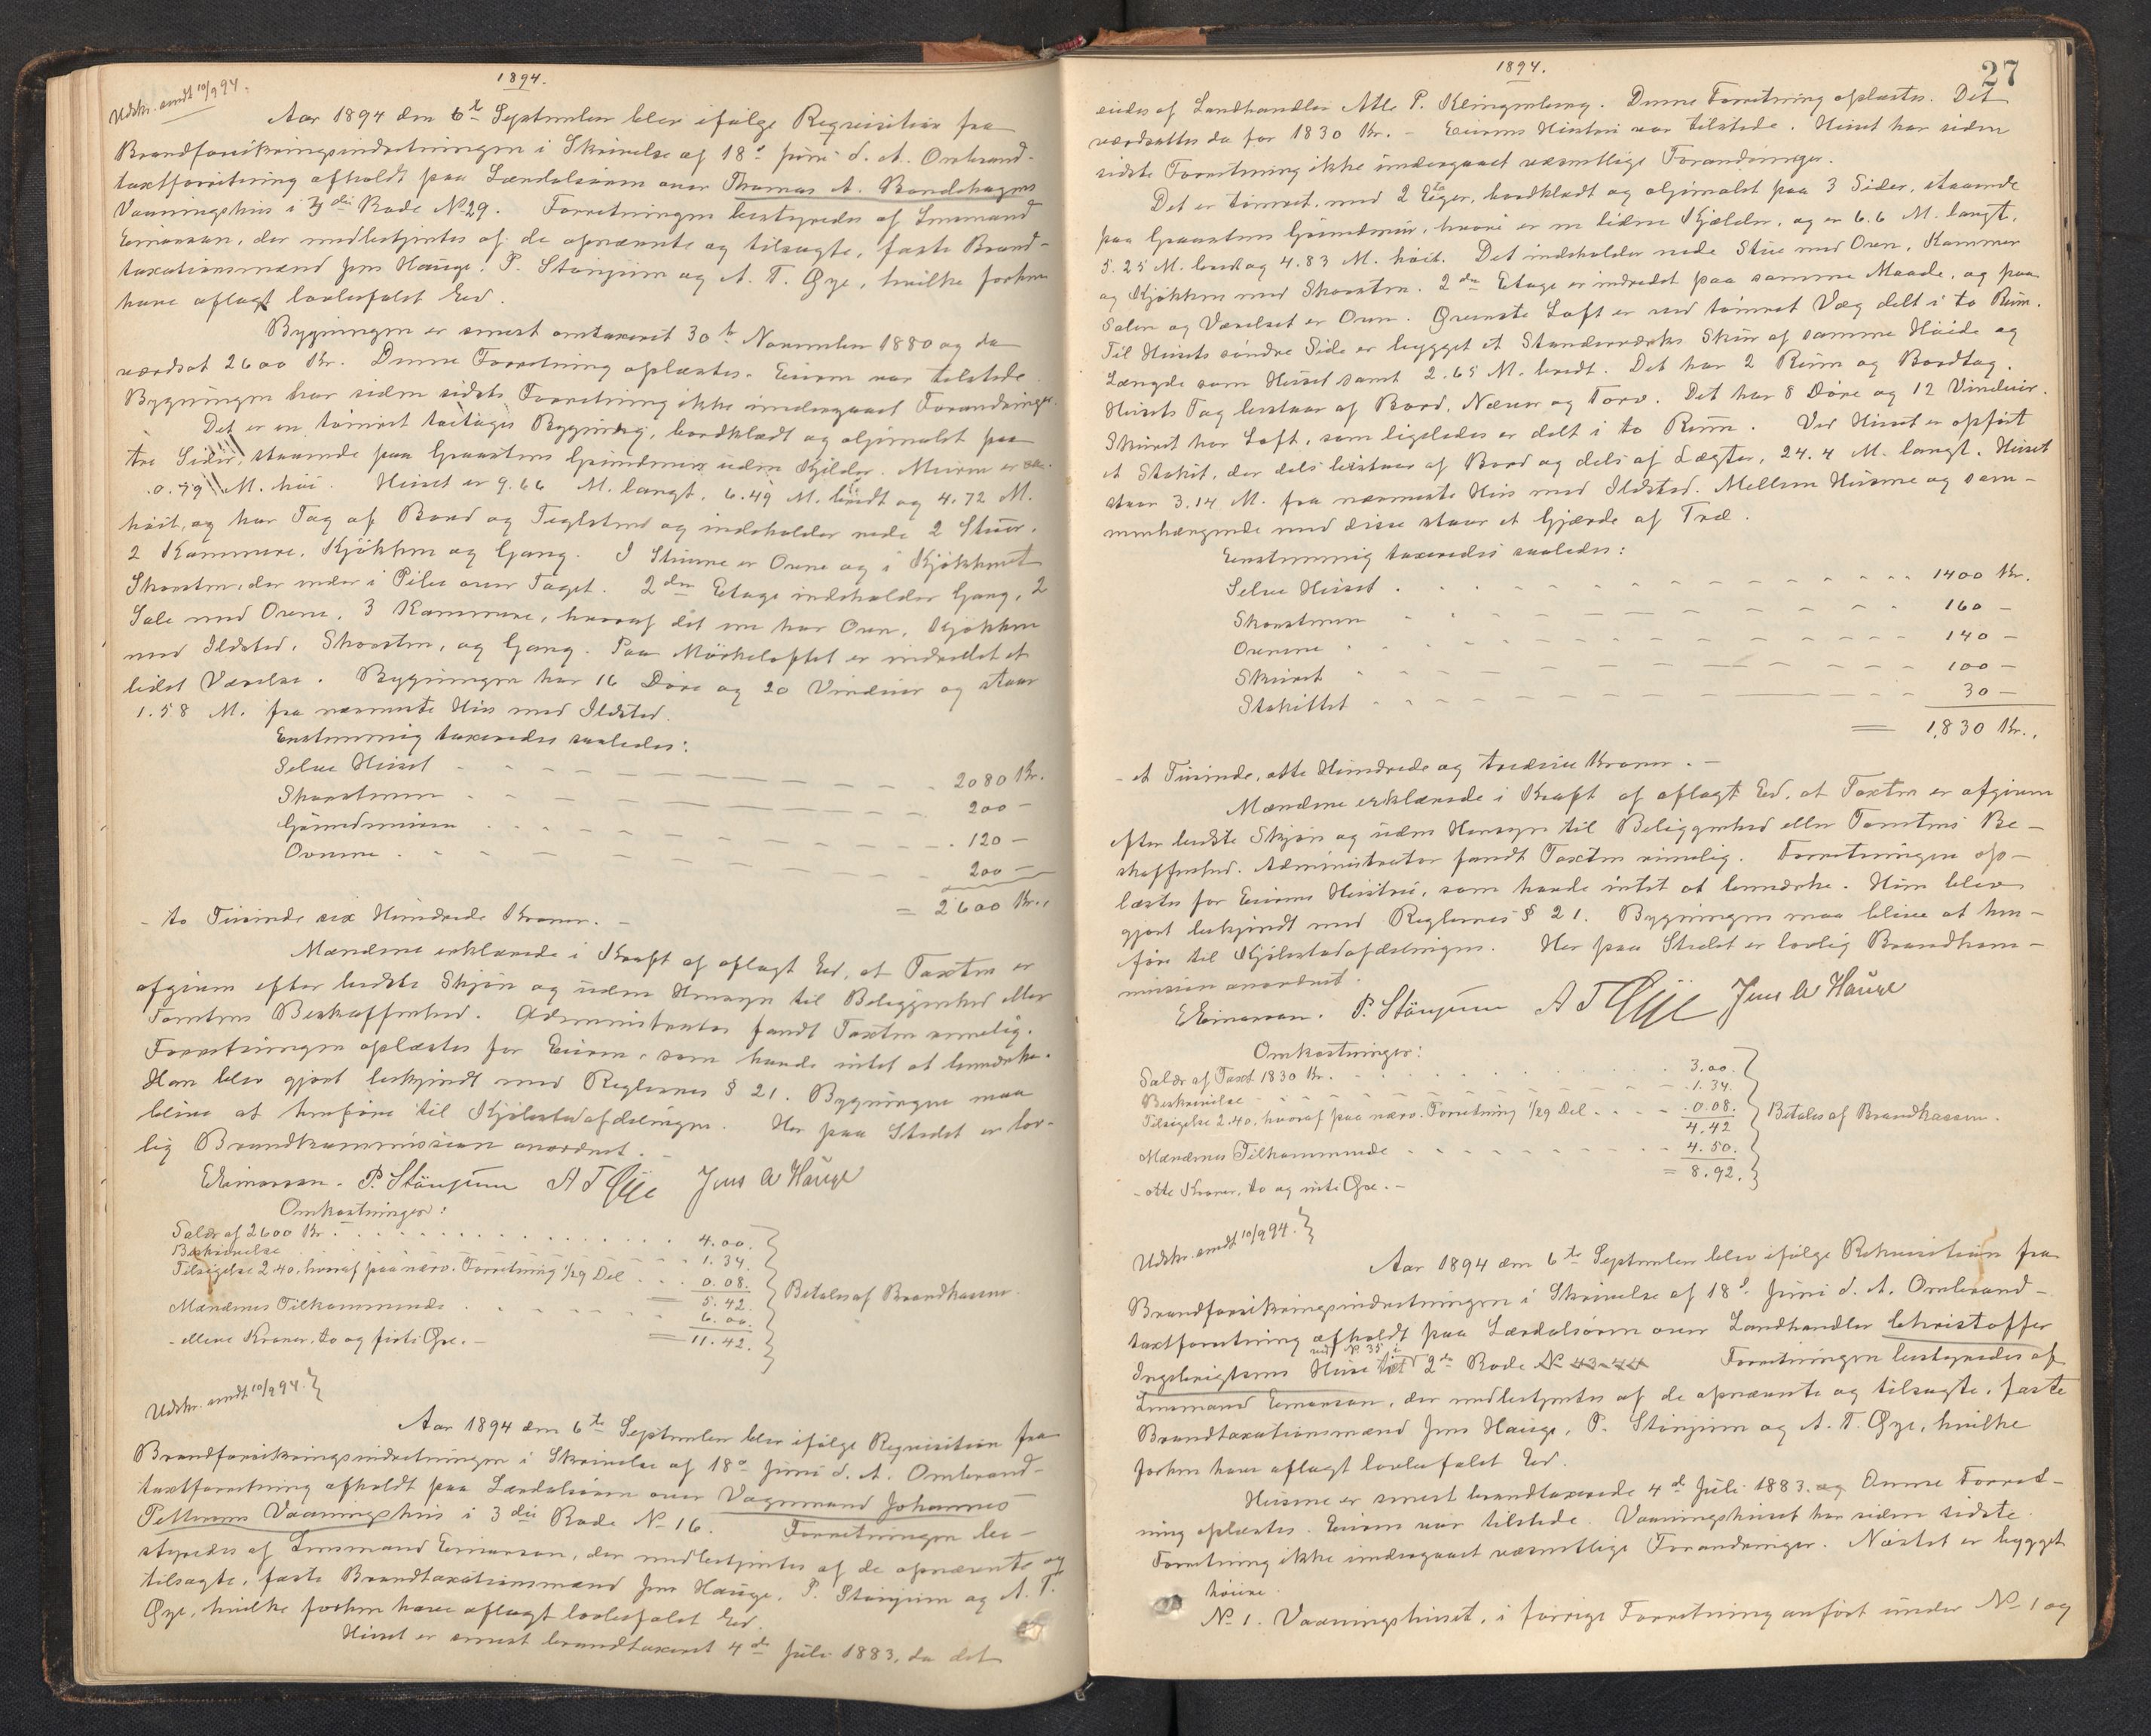 1894.
Udskr. sendt 10/9 94.
Aar 1894 den 6te September blev ifølge Requisition fra
Brandforsikringsindretningen i Skrivelse af 18de Juni d. A. Ombrand-
taxtforretning afholdt paa Lærdalsøren over Thomas A. Bandehagens
Vaaningshus i 3die Rode No 29. Forretningen bestyredes af Lensmand
Einarsen, der medbestjentes af de opnævnte og tilsagte, faste Brand-
taxationsmænd Jens Hauge, P. Stönjum og A. T. Øye, hvilke forhen
have aflagt lovbefalet Ed.
Bygningen er senest omtaxeret 30te November 1880 og da
værdsat 2600 Kr. Denne Forretning oplæstes. Eieren var tilstede.
Bygningen har siden sidste Forretning ikke undergaaet Forandringer.
Det er en tömret toetages Bygning, bordklædt og oljemalet paa
tre Sider, staaende paa Graastens Grundmur uden Kjelder. Muren er
0.79 M. höi. Huset er 9.66 M. langt, 6.49 M. bredt og 4.72 M.
höit, og har Tag af Bord og Teglsten og indeholder nede 2 Stuer,
2 Kammere, Kjökken og Gang. I Stuerne er Ovne og i Kjökkenet
Skorsten, der ender i Pibe over Taget. 2den Etage indeholder Gang, 2
Sale med Ovne, 3 Kammere, hvoraf det ene har Ovn, Kjökken
med Ildsted, Skorsten, og Gang. Paa Mörkeloftet er indredet et
lidet Værelse. Bygningen har 16 Döre og 20 Vinduer og staar
1.58 M. fra nærmeste Hus med Ildsted.
Enstemmig taxeredes saaledes:
Selve Huset 2080 Kr.
Skorstenen 200 —
Grundmuren 120 —
Ovnene 200 —
= 2600 Kr.,
- to Tusinde sex Hundrede Kroner. -
Mændene erklærede i Kraft af aflagt Ed, at Taxten er
afgiven efter bedste Skjön og uden Hensyn til Beliggenhed eller
Tomtens Beskaffenhed. Administrator fandt Taxten rimelig.
Forretningen oplæstes for Eieren, som havde intet at bemærke.
Han blev gjort bekjendt med Reglernes § 21. Bygningen maa
blive at henføre til Kjöbstadafdelingen. Her paa Stedet er lov-
lig Brandkommission anordnet. -
E Einarsen. P. Stönjum A T Øye Jens A Hauge
Omkostninger:
Salær af 2600 Kr. 4.00.
Beskrivelse 1.34.
Tilsigelse 2.40, hvoraf paa nærv. Forretning 1/29 Del 0.08.
= 5.42.
Mændenes Tilkommende 6.00.
- elleve Kroner, to og firti Øre. - = 11.42.
Betales af Brandkassen.
Udskr. sendt 10/9 94.
Aar 1894 den 6te September blev ifølge Requisition fra
Brandforsikringsindretningen i Skrivelse af 18de Juni d. A. Ombrand-
taxtforretning afholdt paa Lærdalsøren over Vognmand Johannes
Pettersens Vaaningshus i 3die Rode No 16. Forretningen be-
styredes af Lensmand Einarsen, der medbestjentes af de opnævnte og
tilsagte, faste Brandtaxationsmænd Jens Hauge, P. Stönjum og A. T.
Øye, hvilke forhen have aflagt lovbefalet Ed.
Huset er senest brandtaxeret 4de Juli 1883, da det
1894.
27
eiedes af Landhandler Atle P. Klingenberg. Denne Forretning oplæstes. Det
værdsattes da for 1830 Kr. - Eierens Hustru var tilstede. Huset har siden
sidste Forretning ikke undergaaet væsentlige Forandringer.
Det er tömret, med 2 Etager, bordklædt og oljemalet paa 3 Sider, staaende
paa Graastens Grundmur, hvori er en liden Kjælder, og er 6.6 M. langt,
5.25 M. bredt og 4.83 M. höit. Det indeholder nede Stue med Ovn, Kammer
og Kjökken med Skorsten. 2den Etage er indredet paa samme Maade, og paa
Salen og Værelset er Ovn. Øverste Loft er ved tömret Væg delt i to Rum.
Til Husets söndre Side er bygget et Standerværks Skur af samme Höide og
Længde som Huset samt 2.65 M. bredt. Det har 2 Rum og Bordtag.
Husets Tag bestaar af Bord, Næver og Torv. Det har 8 Döre og 12 Vinduer.
Skuret har Loft, som ligeledes er delt i to Rum. Ved Huset er opfört
et Stakit, der dels bestaar af Bord og dels af Lægter, 24.4 M. langt. Huset
staar 3.14 M. fra nærmeste Hus med Ildsted. Mellem Husene og sam-
menhængende med disse staar et Gjærde af Træ.
Eenstemmig taxeredes saaledes:
Selve Huset 1400 Kr.
Skorstenen 160 —
Ovnene 140 —
Skuret 100 —
Stakittet 30 —
= 1,830 Kr.,
- et Tusinde, otte Hundrede og tredive Kroner. -
Mændene erklærede i Kraft af aflagt Ed, at Taxten er afgiven
efter bedste Skjön og uden Hensyn til Beliggenhed eller Tomtens Be-
skaffenhed. Administrator fandt Taxten rimelig. Forretningen op-
læstes for Eierens Hustru, som havde intet at bemærke. Hun blev
gjort bekjendt med Reglernes § 21. Bygningen maa blive at hen-
före til Kjöbstadafdelingen. Her paa Stedet er lovlig Brandkom-
mission anordnet.
E Einarsen. P. Stönjum A T Øye Jens A Hauge
Omkostninger:
Salær af Taxt 1830 Kr. 3.00.
Beskrivelse 1.34.
Tilsigelse 2.40, hvoraf paa nærv. Forretning 1/29 Del 0.08.
4.42
Mændenes Tilkommende 4.50.
- otte Kroner, to og niti Øre. - = 8.92.
Betales af Brandkassen.
Udskr. sendt 10/9 94.
Aar 1894 den 6te September blev ifølge Rekvisition fra
Brandforsikringsindretningen i Skrivelse af 18de Juni d. A. Ombrand-
taxtforretning afholdt paa Lærdalsøren over Landhandler Christoffer
ved No 35 i
Ingebrigtsens Huse 2de Rode No 43-44 Forretningen bestyredes af
Lensmand Einarsen, der medbestjentes af de opnævnte og tilsagte, faste
Brandtaxationsmænd Jens Hauge, P. Stönjum og A. T. Øye, hvilke
forhen have aflagt lovbefalet Ed.
Husene er senest brandtaxerede 4de Juli 1883. og Denne Forret-
ning oplæstes. Eieren var tilstede. Vaaningshuset har siden sidste
Forretning ikke undergaaet væsentlige Forandringer. Nöstet er bygget
höiere.
No 1. Vaaningshuset, i forrige Forretning anfört under No 1 og